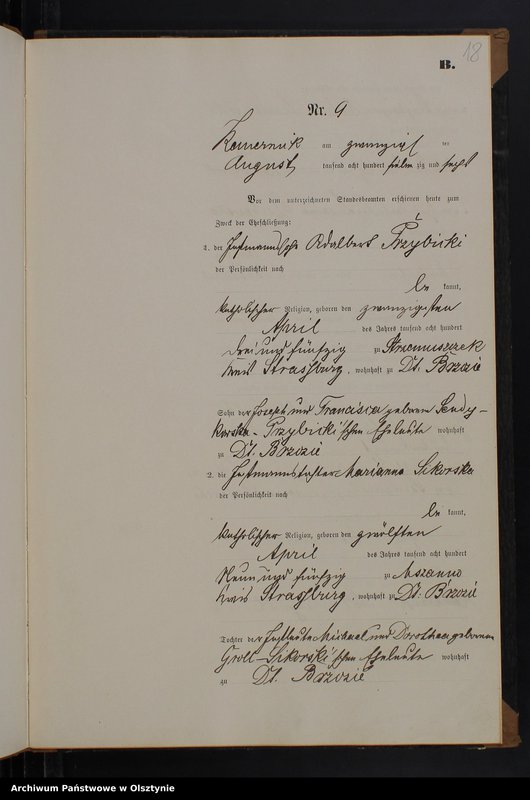 18
B.
Nr. 9
am zwanzigsten
August tausend acht hundert sieben zig und sechs
Vor dem unterzeichneten Standesbeamten erschienen heute zum
Zweck der Eheschließung:
1. der Instmannssohn Adalbert Przybicki
der Persönlichkeit nach
be kannt,
katholischer Religion, geboren den zwanzigsten
April des Jahres tausend acht hundert
drei und fünfzig zu
Kreis Straßburg, wohnhaft zu Dt. Brzozie
Sohn der Joseph und Francisca geborene Sendy-
korska-Przybicki'schen Eheleute wohnhaft
zu Dt. Brzozie
2. die Instmannstochter Marianna Sikorska
der Persönlichkeit nach
be kannt,
katholischer Religion, geboren den zwölften
April des Jahres tausend acht hundert
Neun und fünfzig zu Mszanno
Kreis Straßburg, wohnhaft zu Dt. Brzozie
Tochter der Instleute Michael und Dorothea geborene
Groll-Sikorski'schen Eheleute wohnhaft
zu Dt. Brzozie
Archiwum Państwowe w Olsztynie